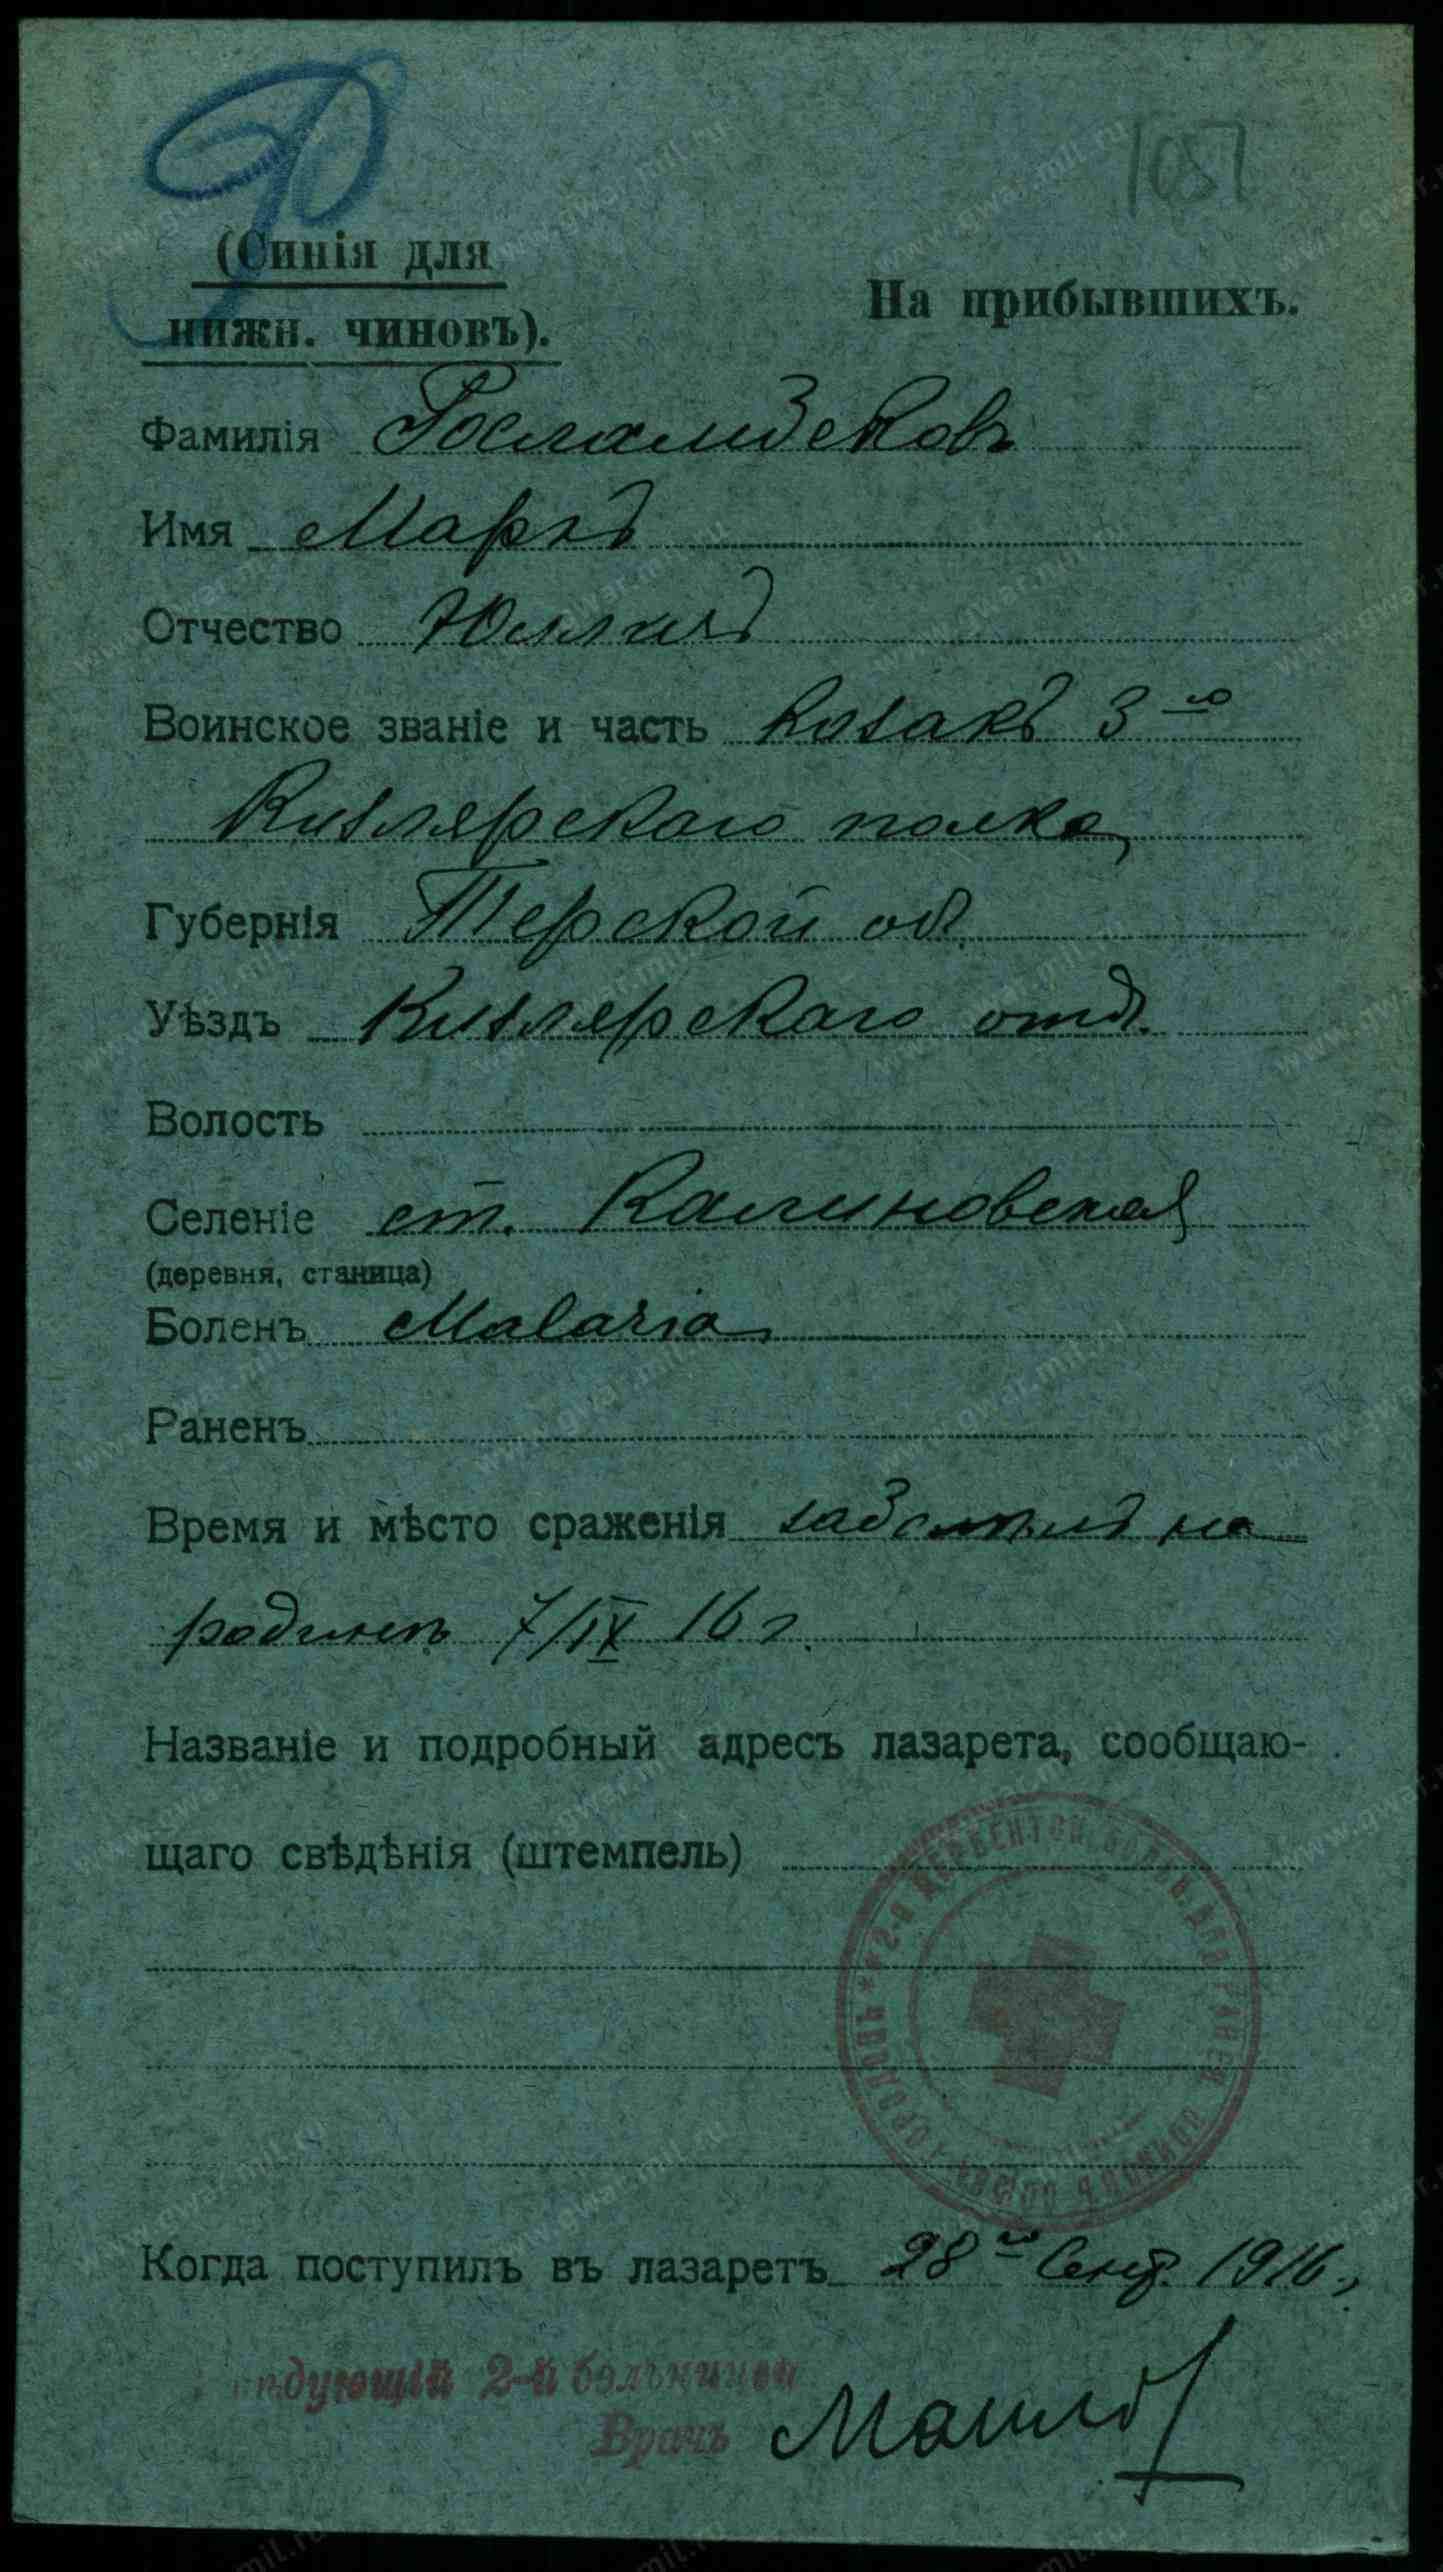 1057
(Синія для
нижн. чиновъ).
На прибывшихъ.
Фамилія Росламбековъ
Имя Маркъ
Отчество
Воинское званіе и часть Козакъ 3-го
Кизлярскаго полка
Губернія Терской об.
Уѣздъ Кизлярскаго отд.
Волость
Селеніе ст. Калиновская
(деревня, станица)
Боленъ Malaria
Раненъ
Время и мѣсто сраженія заболѣлъ на
родинѣ 7/IX 16 г.
Названіе и подробный адресъ лазарета, сообщаю-
щаго свѣдѣнія (штемпель)
Когда поступилъ въ лазаретъ 28-го Сент. 1916 г.
дующій 2-й больницей
Врачъ